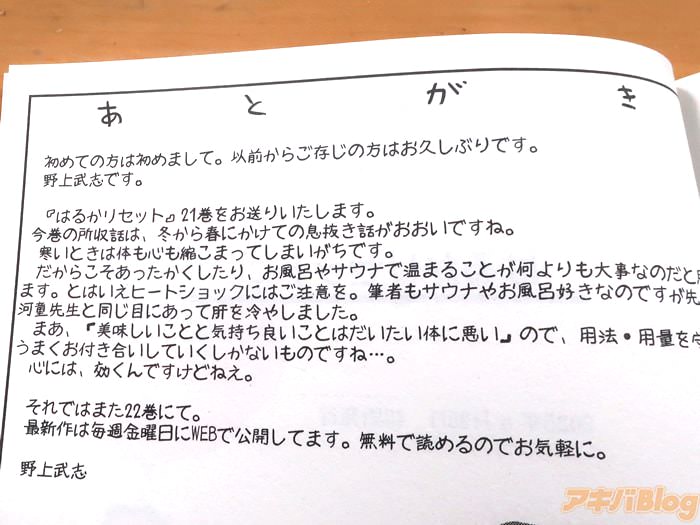 あとがき
初めての方は初めまして。以前からご存じの方はお久しぶりです。
野上武志です。
『はるかリセット』21巻をお送りいたします。
今巻の所収話は、冬から春にかけての息抜き話がおおいですね。
寒いときは体も心も縮こまってしまいがちです。
だからこそあったかくしたり、お風呂やサウナで温まることが何よりも大事なのだと
ます。とはいえヒートショックにはご注意を。筆者もサウナやお風呂好きなのですが先
河童先生と同じ目にあって肝を冷やしました。
まあ、『美味しいことと気持ち良いことはだいたい体に悪い』ので、用法・用量を
うまくお付き合いしていくしかないものですね…。
心には、効くんですけどねえ。
それではまた22巻にて。
最新作は毎週金曜日にWEBで公開してます。無料で読めるのでお気軽に。
野上武志
アキバBlog